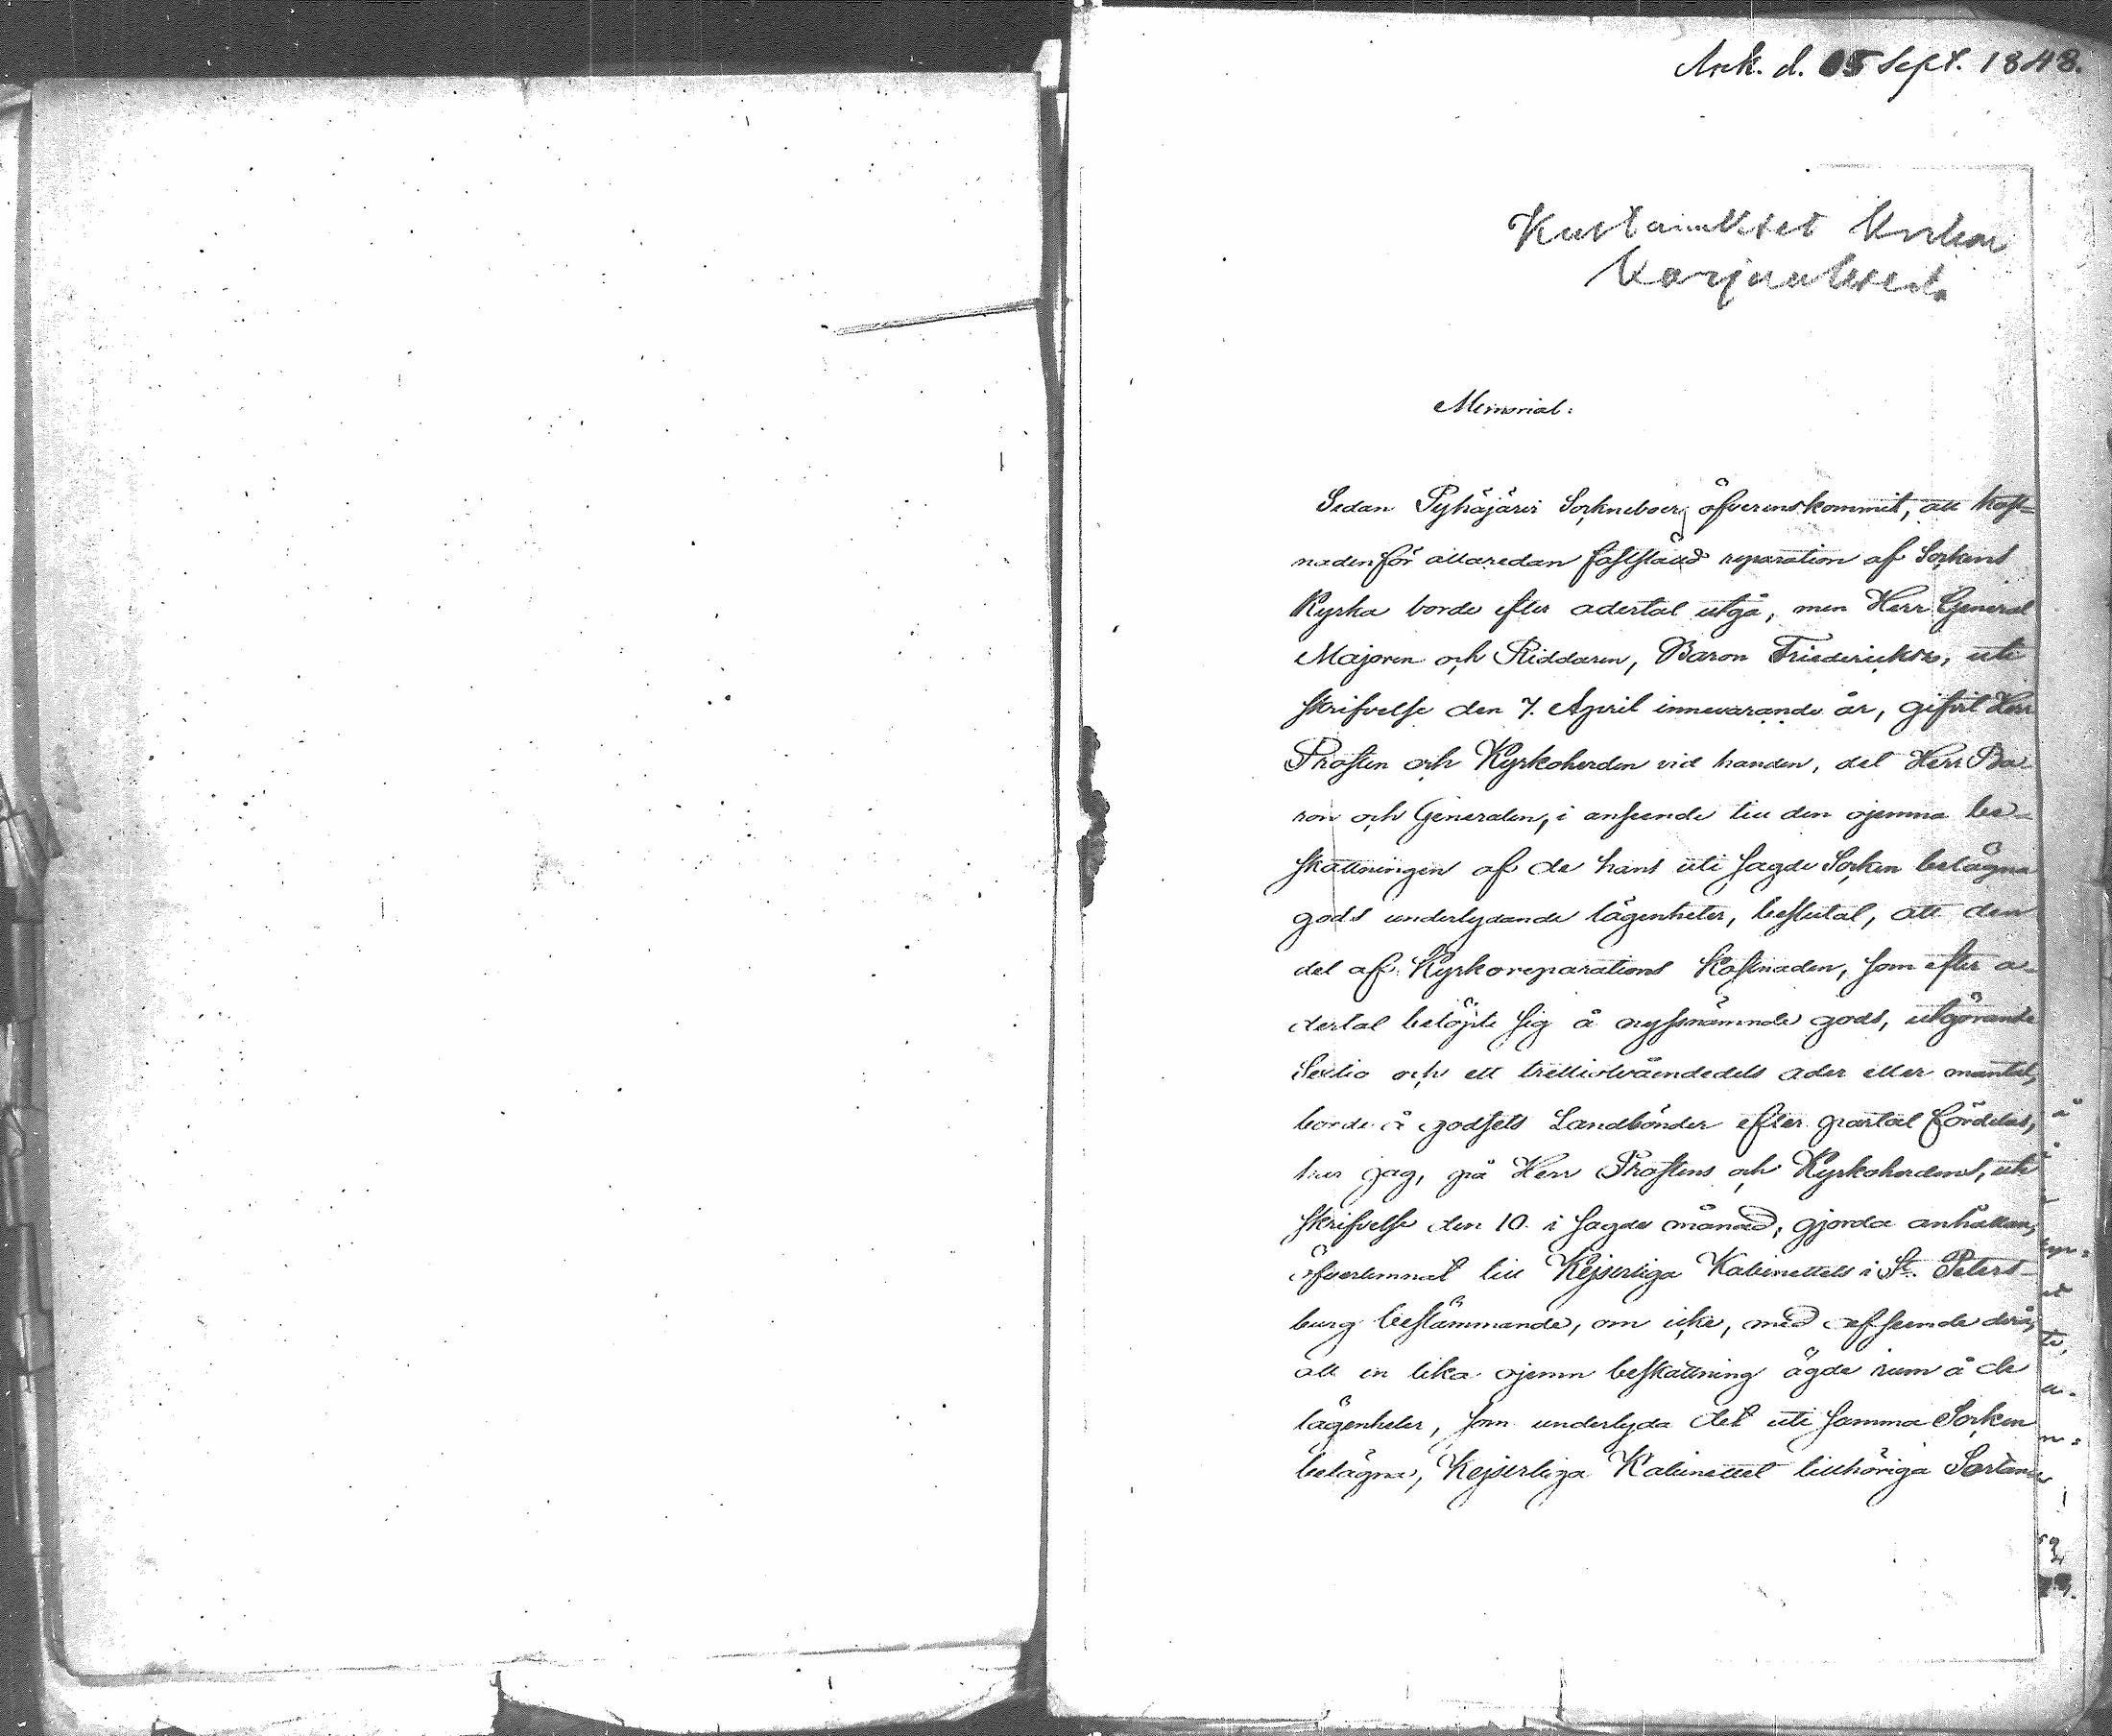 Ank. d. 05 Sept. 1848.
Kustannukset kirkon
korjauksesta
Memorial:
Sedan Pyhäjärvi Sockneboer öfverenskommit, att kost-
naden för allaredan fastställd reparation af Sockens
Kyrka borde efter adertal utgå, men Herr General
Majoren och Riddaren, Baron Friedericksz, uti
skrifvelse den 7. April innevarande år, gifvit Herr
Prosten och Kyrkoherden vid handen, det Herr Ba-
ron och Generalen, i anseende till den ojemna be-
skattningen af de hans uti sagde Socken belägna
gods underlydande lägenheter, beslutat, att den
del af Kyrkoreparations kostnaden, som efter a-
dertal belöpte sig å nyssnämnde gods, utgörande
Sextio och ett trettiotvåendedels ader eller mantal,
borde å godsets Landbönder efter partal fördelas,
har jag, på Herr Prostens och Kyrkoherdens, uti
skrifvelse den 10. i sagde månad, gjorda anhållan,
öfverlemnat till Kejserliga Kabinettets i St. Peters-
burg bestämmande, om icke, med afseende derå,
att en lika ojemn beskattning ägde rum å de
lägenheter, som underlyda det uti samma Socken
belägna, Kejserliga Kabinettet tillhöriga Sortan